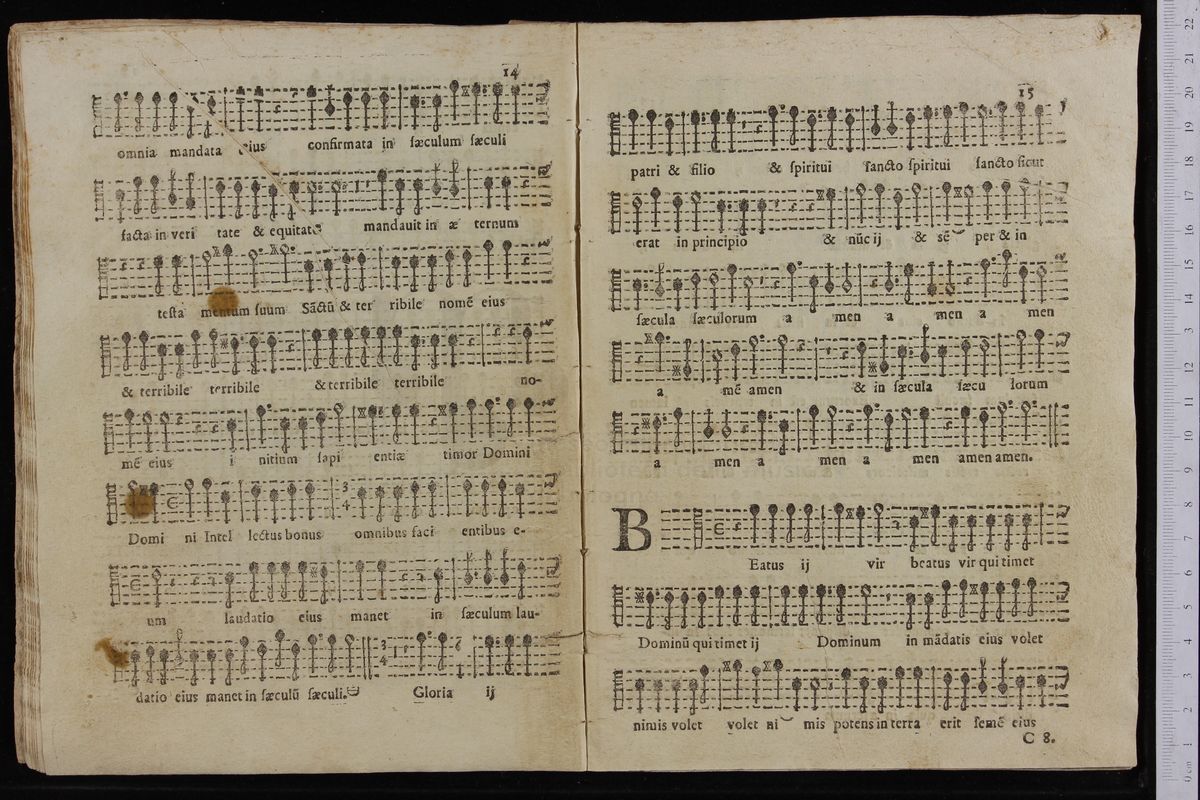 14
omnia mandata eius confirmata in sæculum sæculi
facta in veri tate & equitate mandauit in æ ternum
testa mentum suum Sāctū & ter ribile nomē eius
& terribile terribile & terribile terribile no-
mē eius i nitium sapi entiæ timor Domini
Domi ni Intel lectus bonus omnibus faci entibus e-
um laudatio eius manet in sæculum lau-
datio eius manet in sæculū sæculi. Gloria ij
15
patri & filio & spiritui sancto spiritui sancto sicut
erat in principio & nūc ij & sē per & in
sæcula sæculorum a men a men a men
a mē amen & in sæcula sæcu lorum
a men a men a men amen amen.
BEatus ij vir beatus vir qui timet
Dominū qui timet ij Dominum in mādatis eius volet
nimis volet volet ni mis potens in terra erit semē eius
C 8.